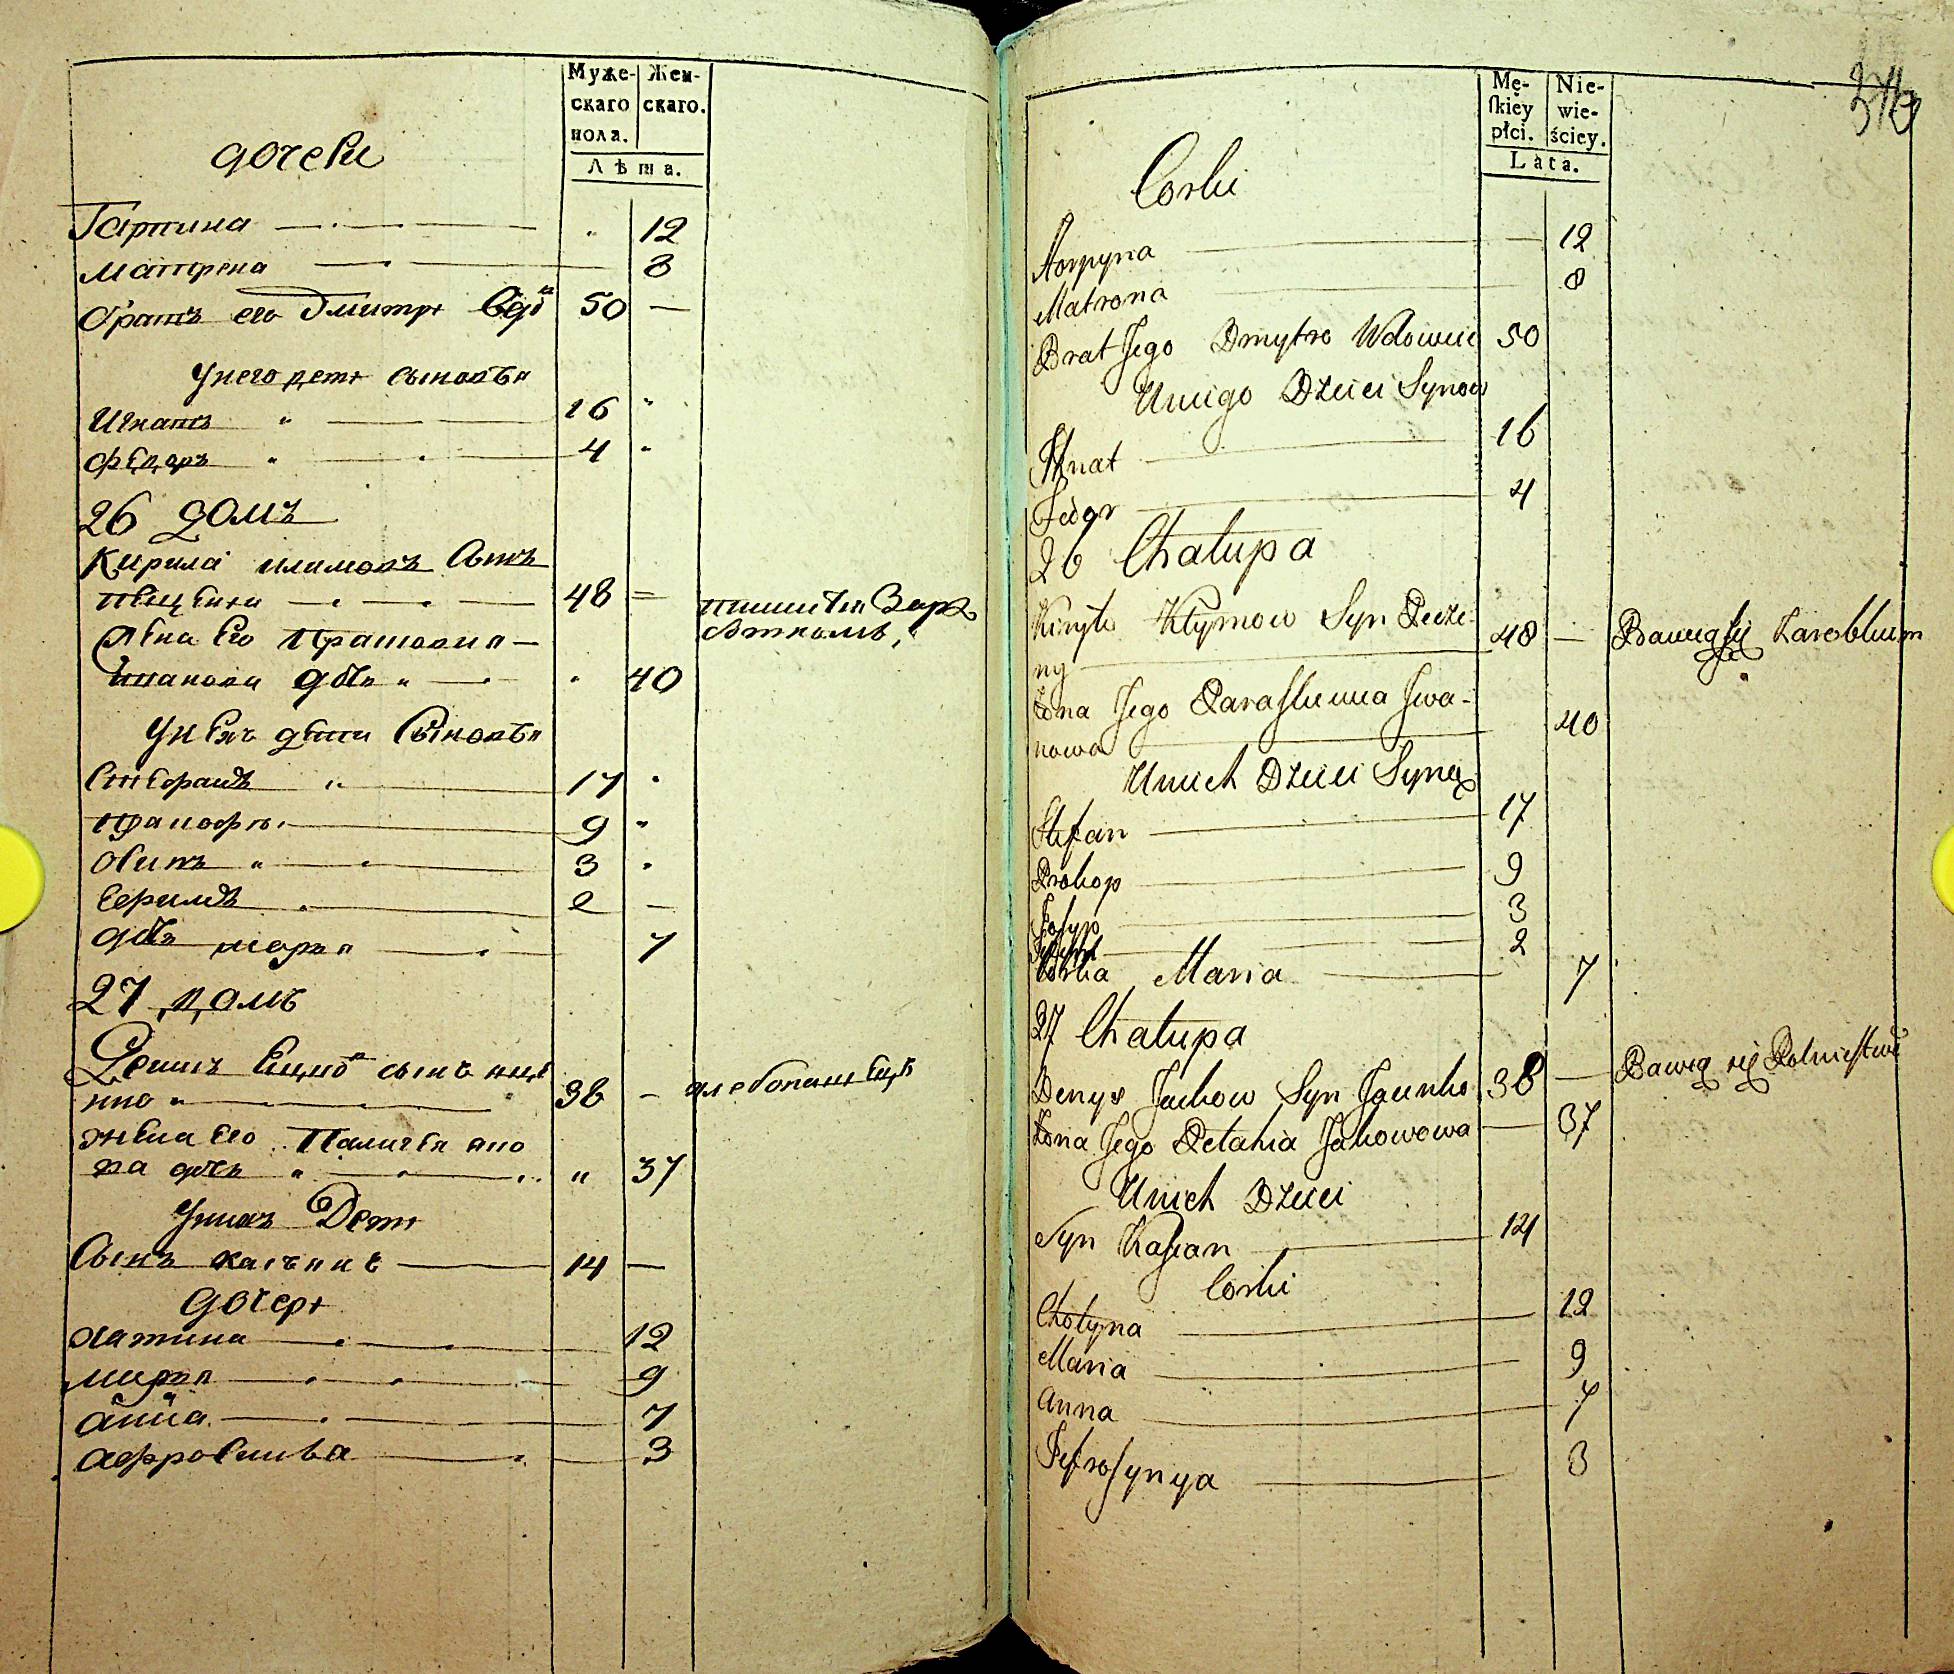 Муже-
скаго
пола.
Жен-
скаго.
Лѣта.
дочеки
Гарпина 12
Матфена 8
братъ его Дмитрı вдо 50 —
У него детı сыновъя
Игнатъ 16
Федаръ 4
26 домъ
Кирила климовъ Сынъ
48 —
Жена Его Прасковия
Иванова дочь 40
Сыновъя
Стефанъ 17
9
Осипъ 3
2
дочь маръя 7
27 домъ
Денисъ сынъ
38 —
жена Его Палагея
ва дочь 37
У нихъ Детı
Сынъ касъянъ 14 —
дочерı
12
маръя 9
анна 7
3
376
Mę-
ſkiey
płci.
Nie-
wie-
ściey.
Lata.
Corki
Horpyna 12
Matrona 8
Brat Jego Dmytro Wdowiec 50
U niego Dzieci Synow
Hnat 16
Fedor 4
26 Chałupa
Kiryło Kłymow Syn Pecze-
ny 48 — Bawią się Zarobkiem
Żona Jego Paraskiewia Jwa-
nowa 40
U nich Dzieci Syny
Stefan 17
Prokop 9
Josyp 3
2
Corka Maria 7
27 Chałupa
Denys Jackow Syn 38 — Bawią się Rolnictwem
Żona Jego Petahia Jakowowa — 37
U nich Dzieci
Syn Kasian 14
Corki
Chotyna 12
Maria 9
Anna 7
Jefrosynya 3